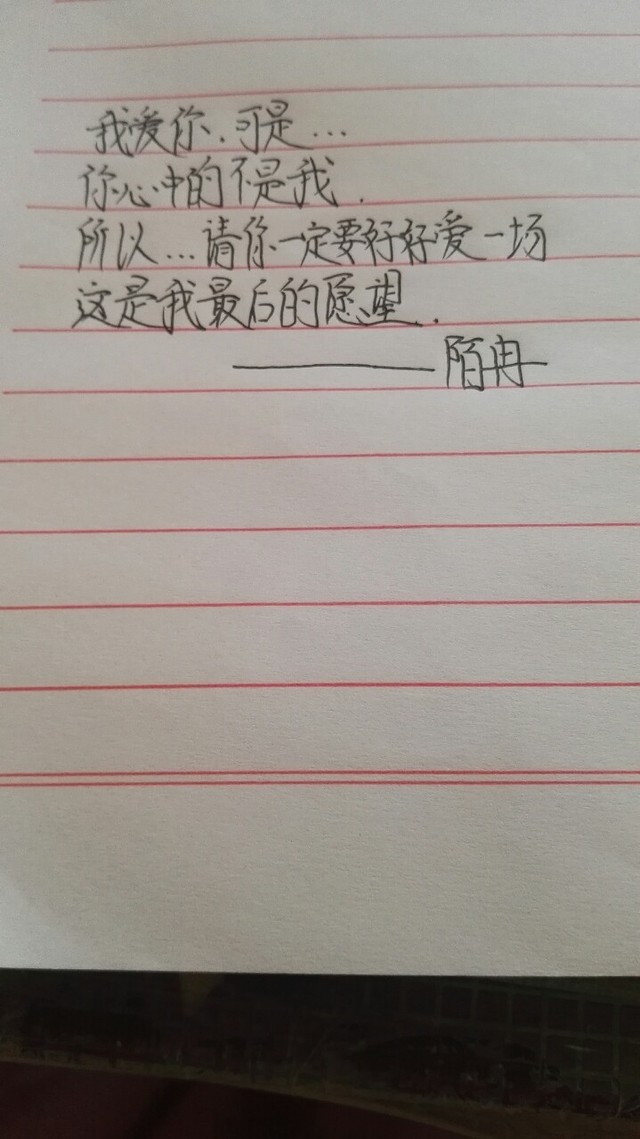 我爱你.可是...
你心中的不是我.
所以...请你一定要好好爱一场
这是我最后的愿望.
——陌冉